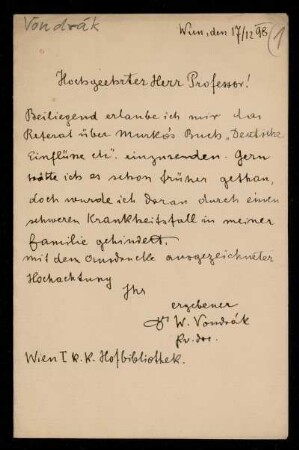 Vondrák
Wien, den 17/12 98
(1
Hochgeehrter Herr Professor!
Beiliegend erlaube ich mir das
Referat über Murko's Buch „Deutsche
Einflüsse etc". einzusenden. Gern
hätte ich es schon früher gethan,
doch wurde ich daran durch einen
schweren Krankheitsfall in meiner
Familie gehindert.
Mit dem Ausdrucke ausgezeichneter
Hochachtung
Ihr
ergebener
Dr W. Vondrák
Pv. doc.
Wien I k. k. Hofbibliothek.